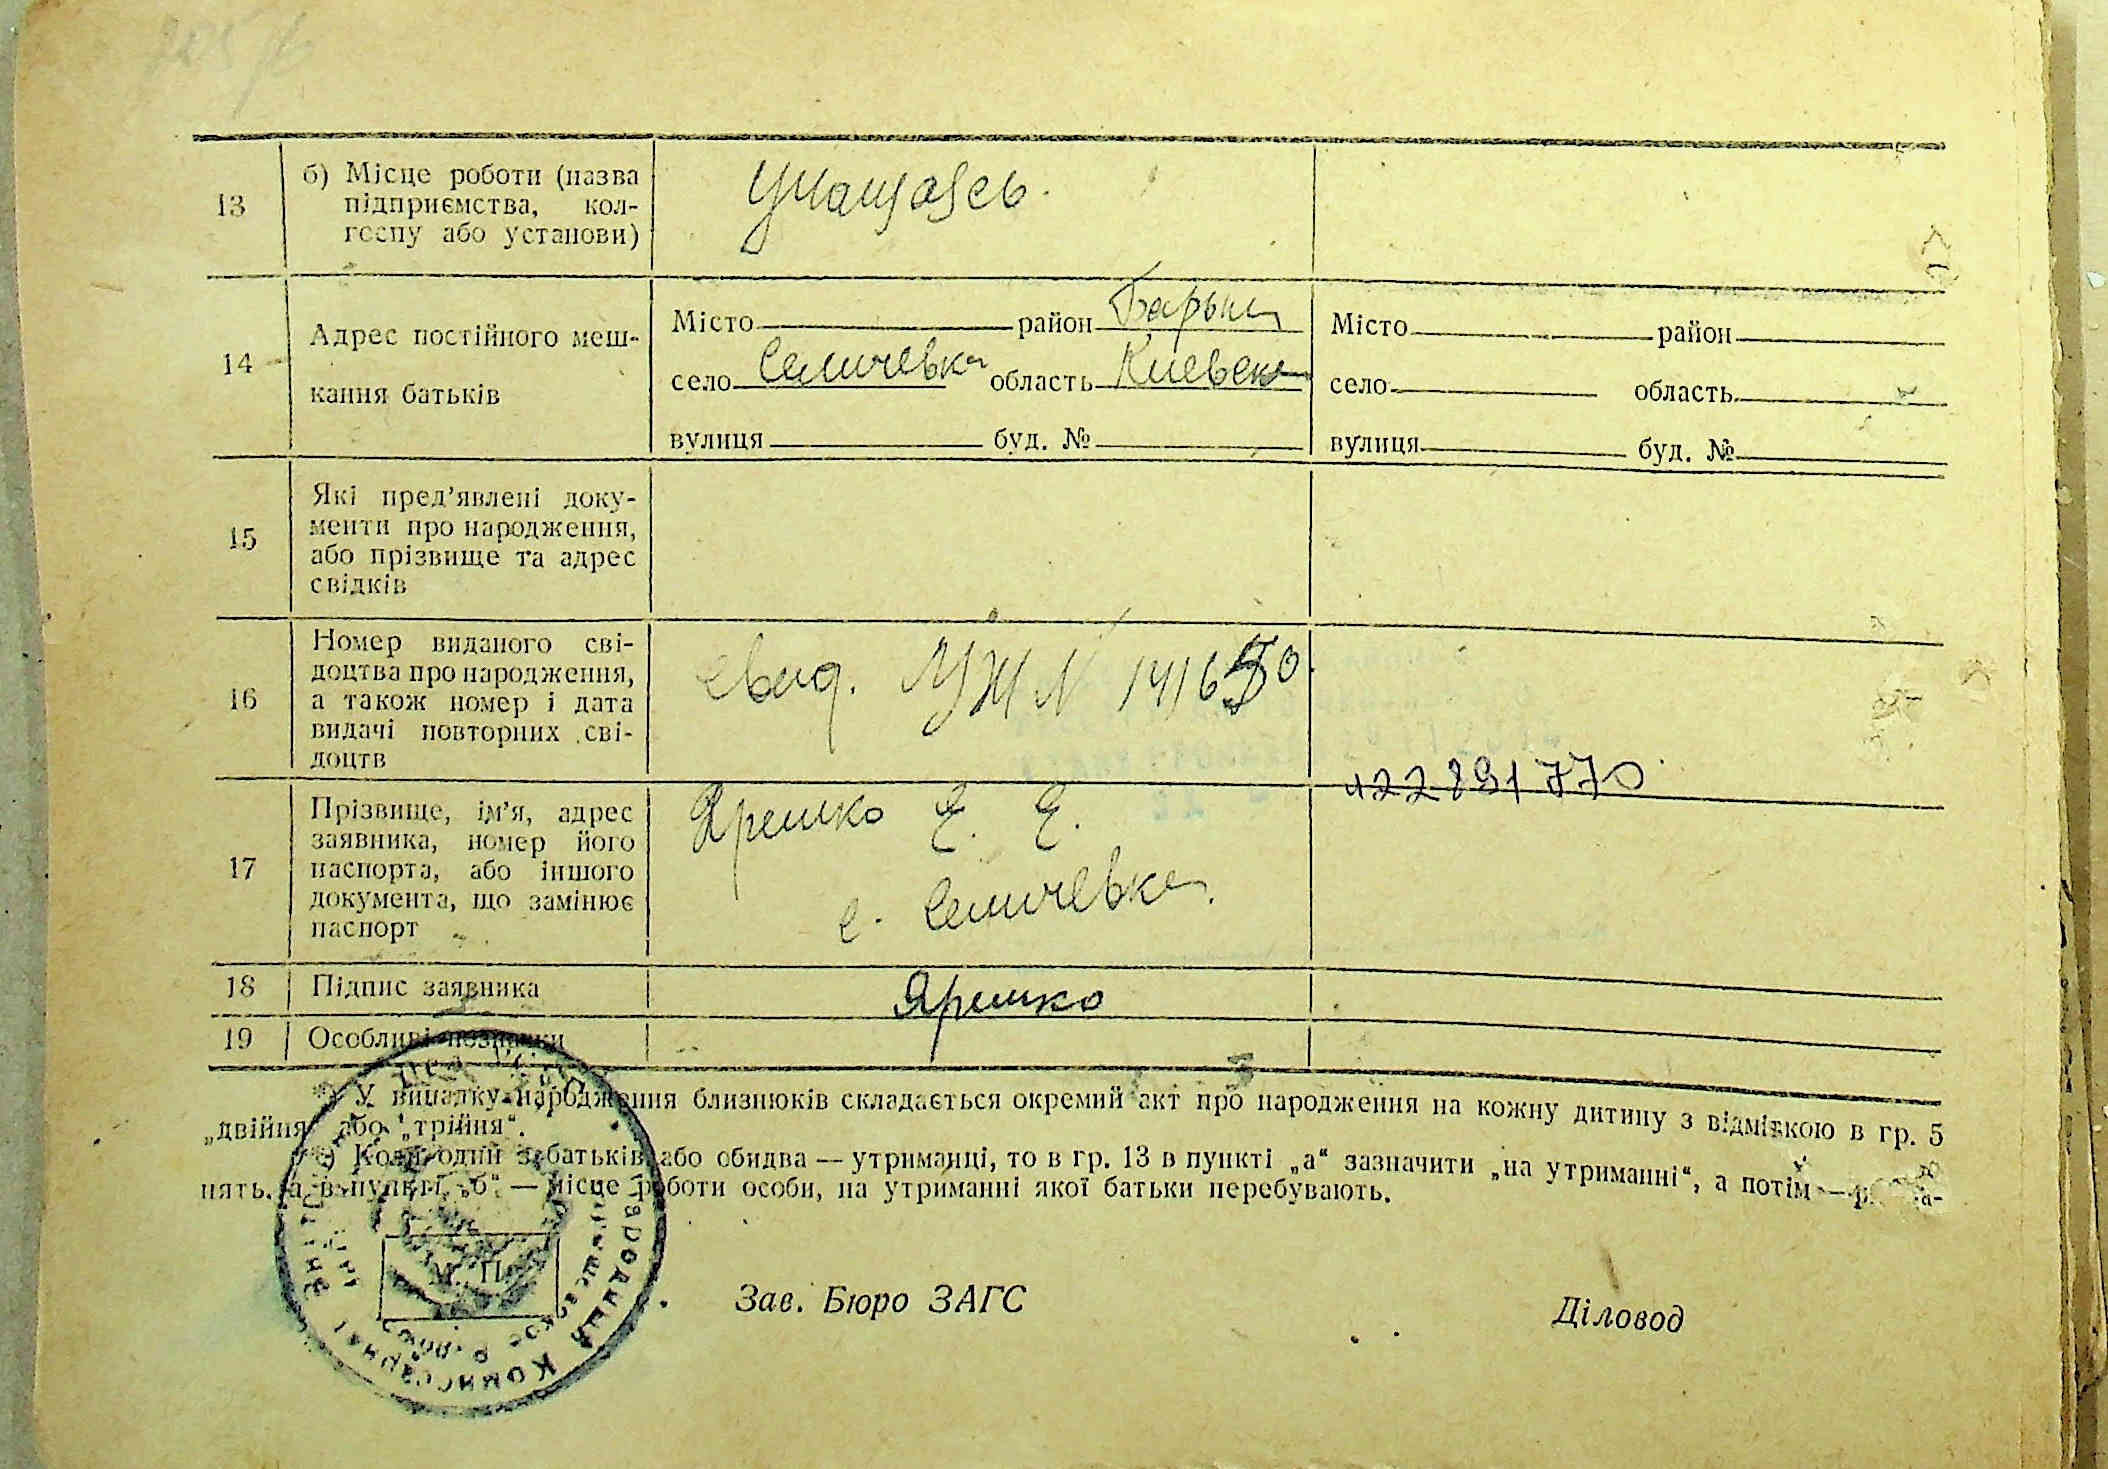 13
б) Місце роботи (назва
підприємства, кол-
госпу або установи)
14
Адрес постійного меш-
кання батьків
Місто район
село Семичевка область Киевска
вулиця буд. №
Місто район
село область
вулиця буд. №
15
Які пред’явлені доку-
менти про народження,
або прізвище та адрес
свідків
16
Номер виданого сві-
доцтва про народження,
а також номер і дата
видачі повторних сві-
доцтв
свид. УЖ № 141650.
122891770
17
Прізвище, ім’я, адрес
заявника, номер його
паспорта, або іншого
документа, що замінює
паспорт
Ярешко Е. Е.
с. Семичевка.
18
Підпис заявника
Ярешко
19
Особливі позначки
*) У випадку народження близнюків складається окремий акт про народження на кожну дитину з відміткою в гр. 5
„двійня“ або „трійня“.
Коли один з батьків або обидва — утриманці, то в гр. 13 в пункті „а“ зазначити „на утриманні“, а потім —
нять, а в пункті „б“ — місце роботи особи, на утриманні якої батьки перебувають.
М. П.
Зав. Бюро ЗАГС
Діловод